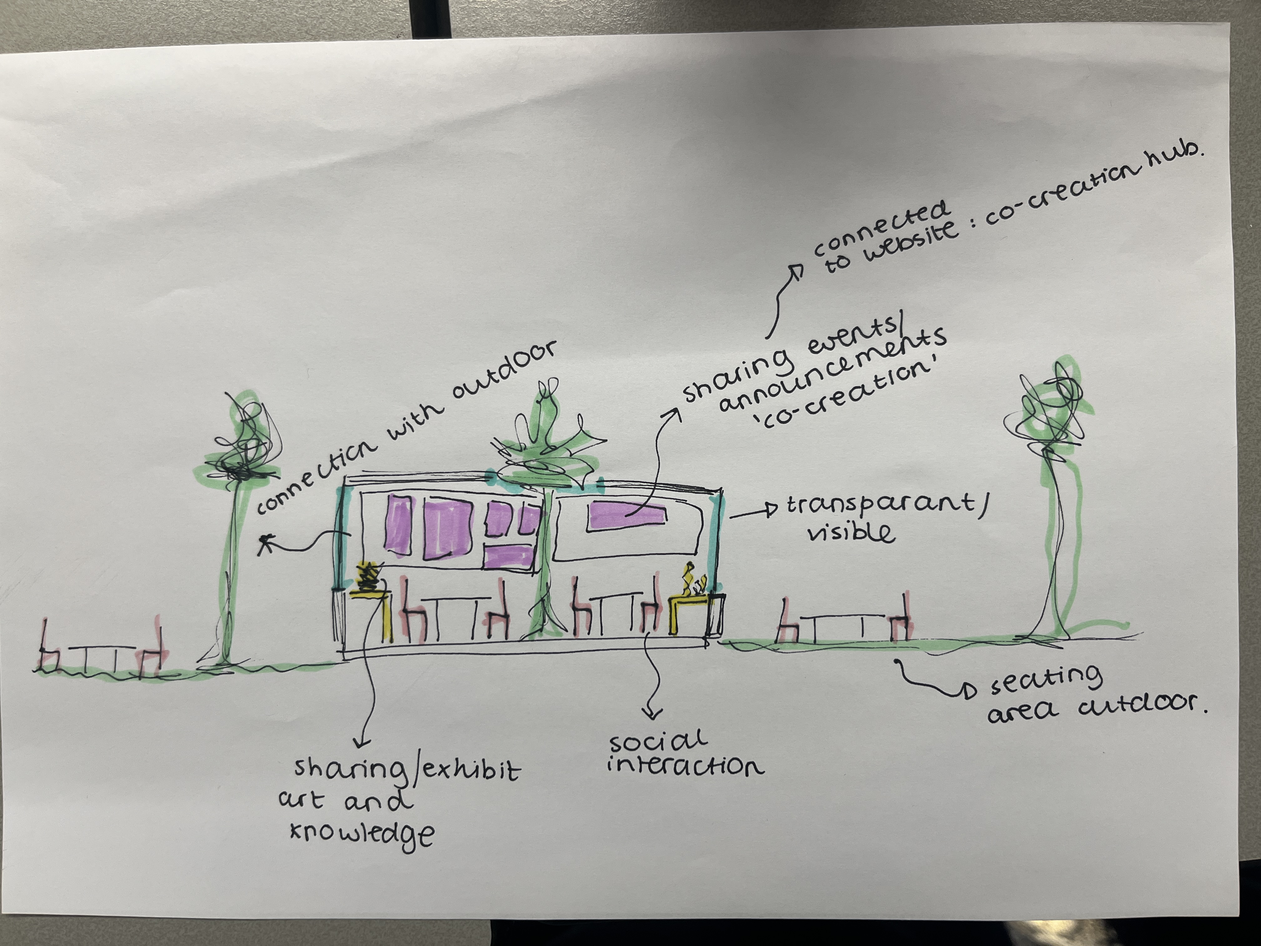 connected
to website : co-creation hub.
sharing events/
announcements
'co-creation'
connection with outdoor
transparant/
visible
seating
area outdoor.
social
interaction
sharing/exhibit
art and
knowledge